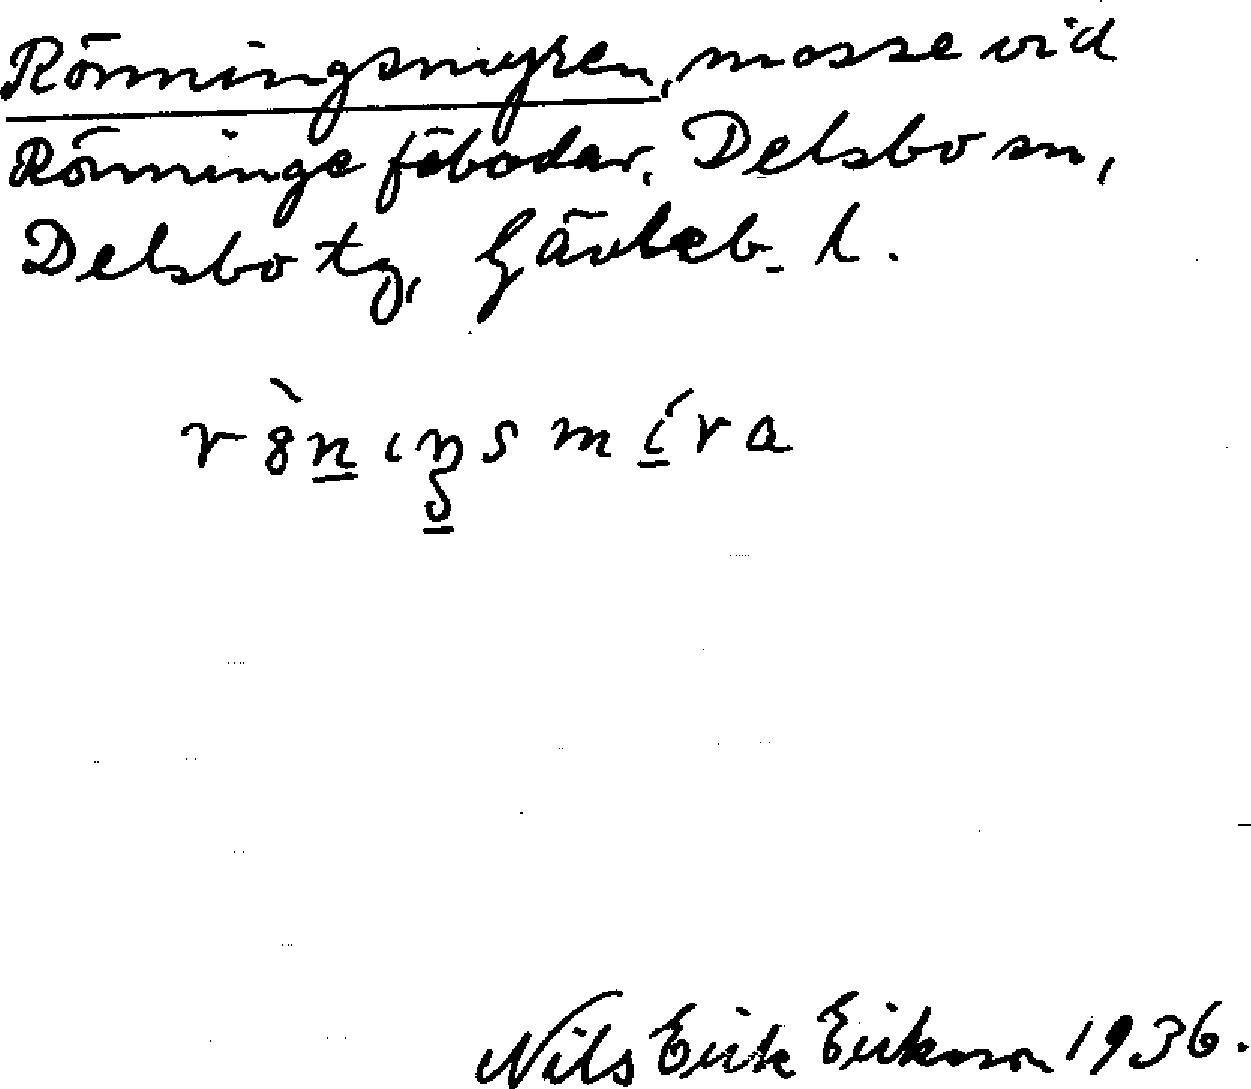 Rönningsmyren, mosse vid
Rönninge fäbodar. Delsbo sn,
Delsbo tg, Gävleb. l.
r8̀n̲ıŋs mı̲́ra
Nils Erik Erikson 1936.